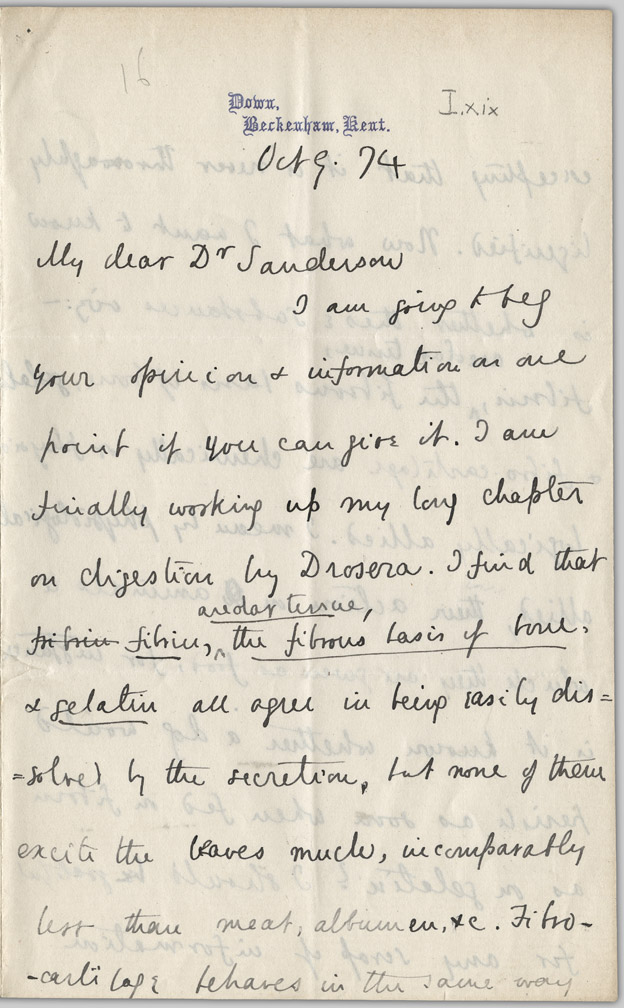 16
I.xix
Down,
Beckenham, Kent.
Oct 9. 74
My dear Dr Sanderson
I am going to beg
your opinion & information on one
point if you can give it. I am
finally working up my long chapter
on digestion by Drosera. I find that
areolar tissue,
fribrin fibrin, ^ the fibrous basis of bone,
& gelatin all agree in being easily dis=
=solved by the secretion, but none of them
excite the leaves much, incomparably
less than meat, albumen, &c. Fibro-
-cartilage behaves in the same way